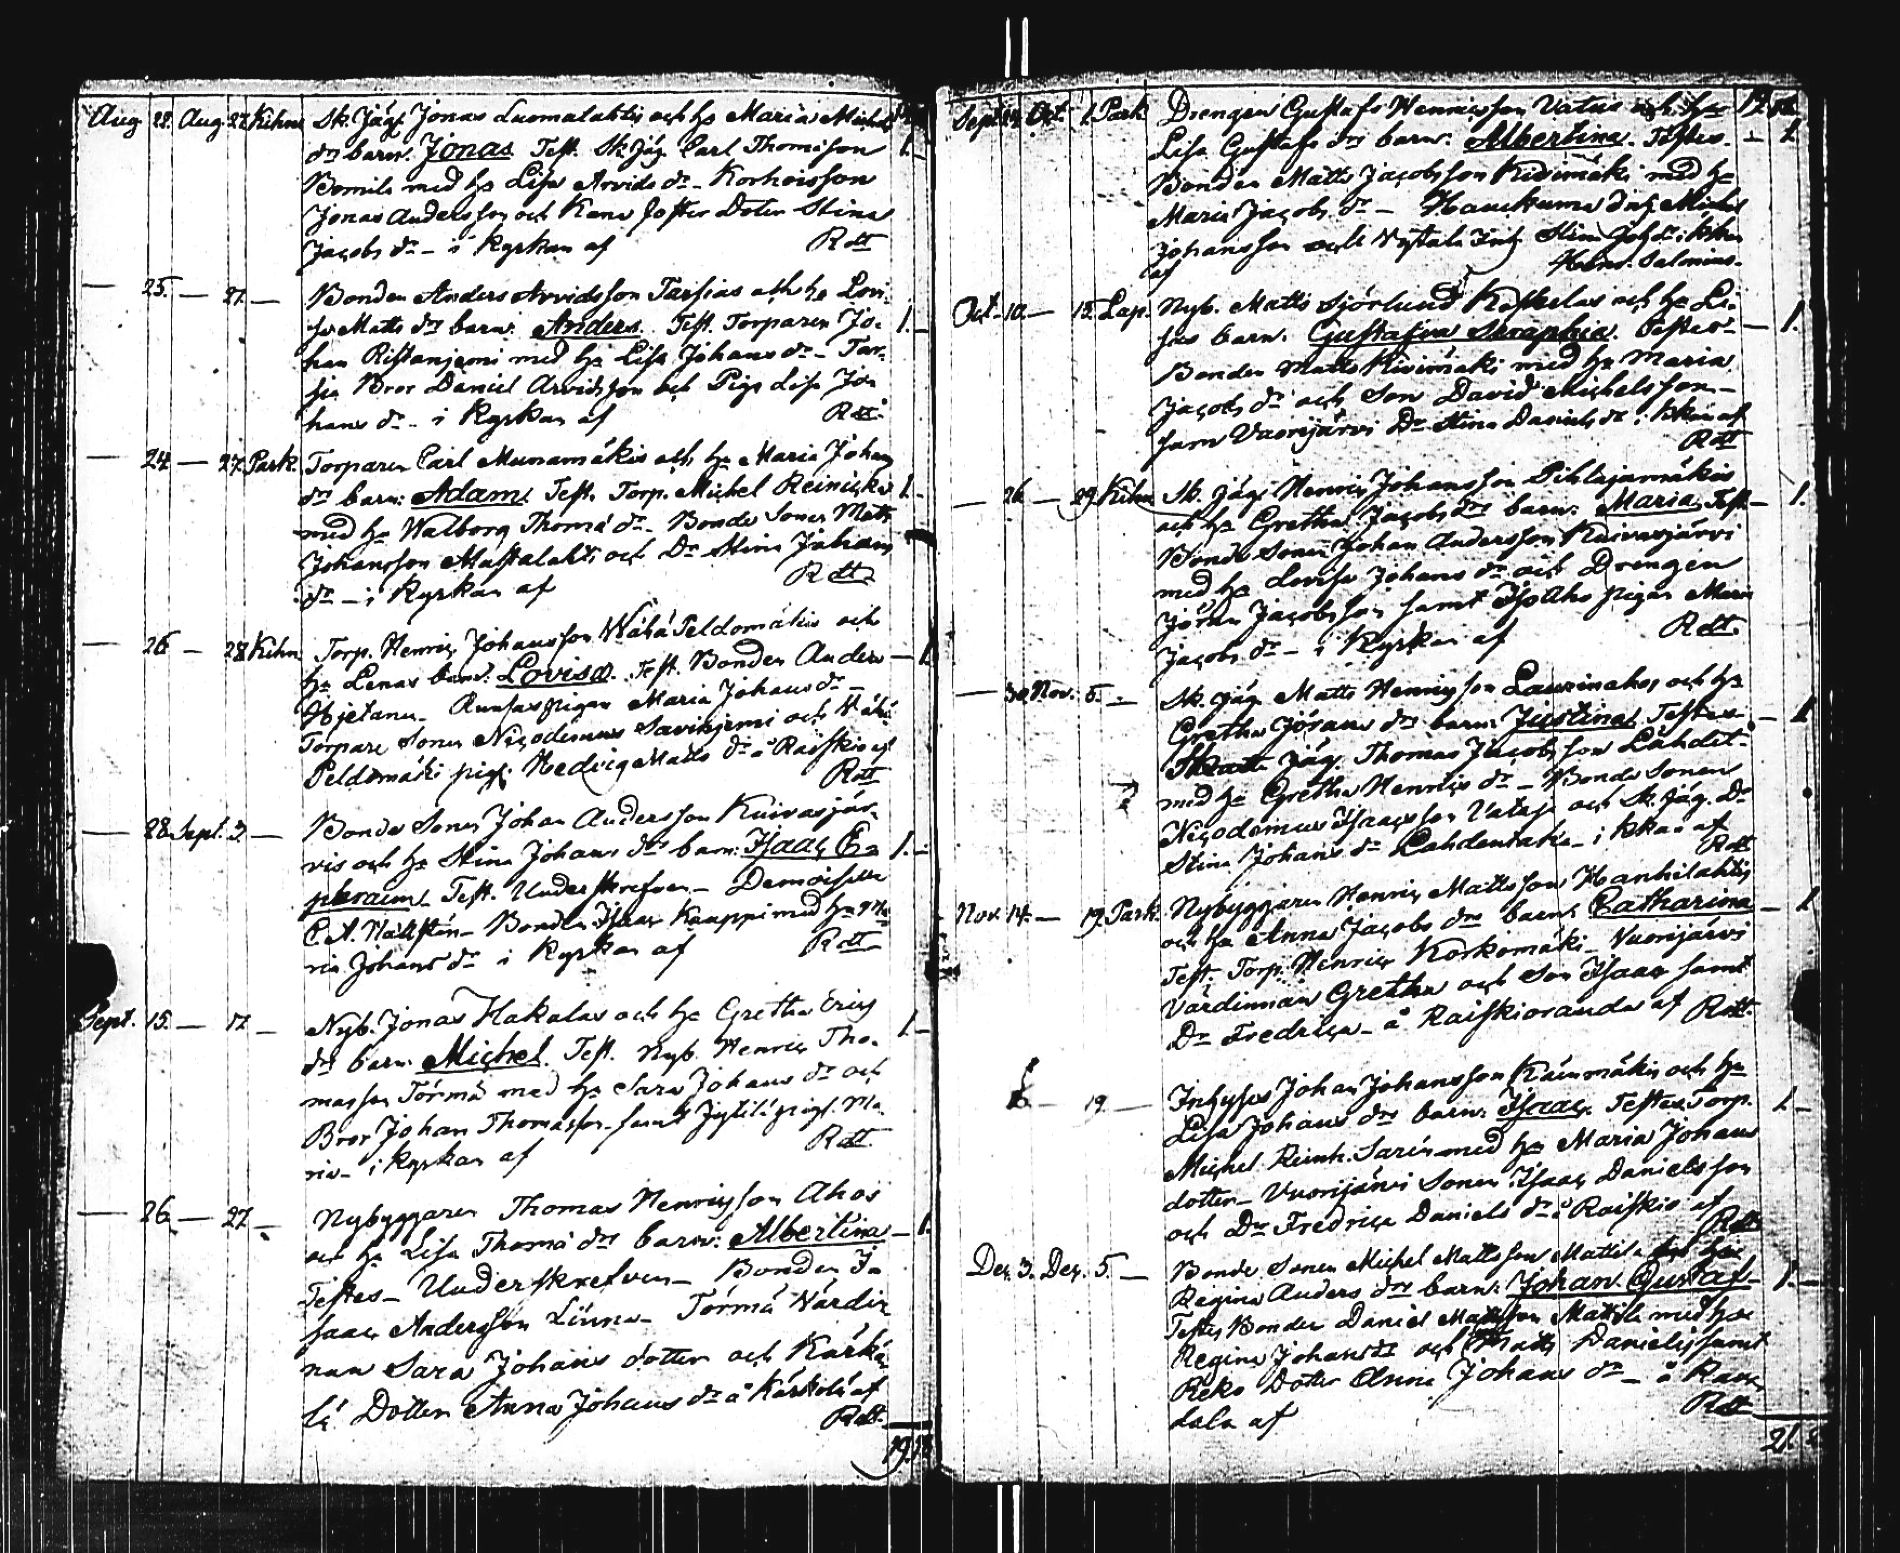 Aug 22. Aug 27. Kihn Sk. Jäg. Jonas Luomalahtis och h. Maria Michels
drs barn. Jonas Test. Sk. Jäg. Carl Thomsson 1.
med h. Lisa Arvids dr - Korhoisson
Jonas Andersson och Dotter Stina
Jacobs dr - i Kyrkan af Rtt
25. 27. Bonden Anders Arvidsson Tarsias och h. Lovi-
sa Matts drs barn: Anders. Test. Torparen Jo- 1.
han Ristaniemi med h. Lisa Johans dr - Tar-
sia Bror Daniel Arvidsson och Piga Lisa Jo-
hans dr - i Kyrkan af Rtt
24 27. Park. Torparen Carl Munamäkis och h. Maria Johans
drs barn: Adam. Test. Torp. Michel Reinicka 1.
med h. Walborg Thomä dr - Bonde Sonen Matts
Johansson Mustalahti och Dr Stina Johans
dr - i Kyrkan af Rtt
26 28 Kihn Torp. Henric Johansson Wähä Peldomäkis och
h. Lenas barn: Lovisa. Test. Bonden Anders 1.
Hjetanen - pigan Maria Johans dr -
Torpare Sonen Nicodemus Saviniemi och Wähä
Peldomäki pig. Hedvig Matts dr å Raiskio af
Rtt
28. Sept. 3. Bonde Sonen Johan Andersson Kuivasjär-
vis och h. Stina Johans drs barn: Isaac E- 1.
phraim. Test. Underskrefven - Demoiselle
C. A. Wallstén - Bonden Isaac Kauppi med h. Ma
ria Johans dr i Kyrkan af Rtt
Sept. 15. 17. Nyb. Jonas Hakalas och h. Gretha Erics
drs barn Michel. Test. Nyb. Henric Tho- 1.
masson Törmä med h. Sara Johans dr och
Bror Johan Thomasson samt pig. Ma-
ria - i Kyrkan af Rtt
26 27 Nybyggaren Thomas Henricsson Ahos
och h. Lisa Thomä drs barn: Albertina 1.
Testes - Underskrefven - Bonden I-
saac Andersson Linna - Törmä Värdin
nan Sara Johans dotter och Kärkä
lä Dotter Anna Johans dr å Kärkölä af
Rtt.
19.
Sept. Oct. 1. Park Drengen Gustaf Henricsson Vatais och h.
Lisa Gustafs drs barn: Albertina. Testes. 1.
Bonden Matts Jacobsson Kivimäki med h.
Maria Jacobs dr - Michel
Johansson och Stina
af Henr. Salmenius.
Oct. 10. 12. Lap. Nyb. Matts Sjörlund Koskelas och h. Li-
sas barn. Gustafva Seraphia. Testes 1.
Bonden Matts Kivimäki med h. Maria
Jacobs dr och Son David Michelsson -
samt Vuorijärvi Dr Stina Daniels dr i kkan af
Rtt
26 29 Kihn Sk. Jäg. Henric Johansson Pihlajamäkis
och h. Gretha Jacobs drs barn: Maria Test. 1.
Bonde Sonen Johan Andersson Kuivasjärvi
med h. Lovisa Johans dr och Drengen
Jöran Jacobsson samt Isoaho pigan Maria
Jacobs dr - i Kyrkan af Rtt.
30 Nov. 5. Sk. Jäg. Matts Henricsson Laurinahos och h.
Gretha Jörans drs barn Justina. Testes 1
Jäg. Thomas Jacobsson Lähdet-
med h. Gretha Henrics dr - Bonde Sonen
Nicodemus Isaacsson Vataja och Sk. Jäg. Dr
Stina Johans dr - i kkan af
Rtt
Nov. 14. 19. Park. Nybyggaren Henric Mattsson Hanhilahtis
och h. Anna Jacobs drs barn: Catharina 1
Test. Torp. Henric Korkomäki - Vuorijärvi
Värdinnan Gretha och Son Isaac samt
Dr Fredrica - å Raiskioranda af Rtt.
19. Inhyses Johan Johansson och h.
Lisa Johans drs barn: Isaac. Testes Torp. 1.
Michel Reinh. Sarin med h. Maria Johans
dotter - Vuorijärvi Sonen Isaac Danielsson
och Dr Fredrica Daniels dr å Raiskio af
Rtt
Dec. 3. Dec. 5. Bonde Sonen Michel Mattsson Mattila och h.
Regina Anders drs barn: Johan Gustaf. 1.
Testes Bonden Daniel Mattsson Mattila med h.
Regina Johans dr och Matts Danielsson samt
Reko Dotter Anna Johans dr - å
af Rtt
21.